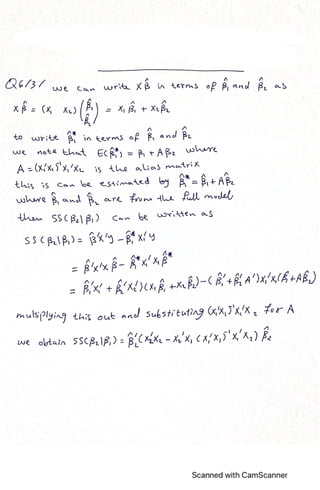 Q6/3/ we can write Xβ̂ in terms of β̂₁ and β̂₂ as
Xβ̂ = (X₁ X₂) (β̂₁ β̂₂) = X₁β̂₁ + X₂β̂₂
to write β̂₁* in terms of β̂₁ and β̂₂
we note that E(β̂₁*) = β₁ + Aβ₂ where
A = (X₁'X₁)⁻¹X₁'X₂ is the alias matrix
this is can be estimated by β̂₁* = β̂₁ + Aβ̂₂
where β̂₁ and β̂₂ are from the full model
then SS(β₂|β₁) can be written as
SS(β₂|β₁) = β̂'X'y - β̂₁*'X₁'y
= β̂'X'Xβ̂ - β̂₁*'X₁'X₁β̂₁*
= (β̂₁'X₁' + β̂₂'X₂')(X₁β̂₁ + X₂β̂₂) - (β̂₁' + β̂₂'A')X₁'X₁(β̂₁ + Aβ̂₂)
multiplying this out and substituting (X₁'X₁)⁻¹X₁'X₂ for A
we obtain SS(β₂|β₁) = β̂₂'(X₂'X₂ - X₂'X₁(X₁'X₁)⁻¹X₁'X₂)β̂₂
Scanned with CamScanner